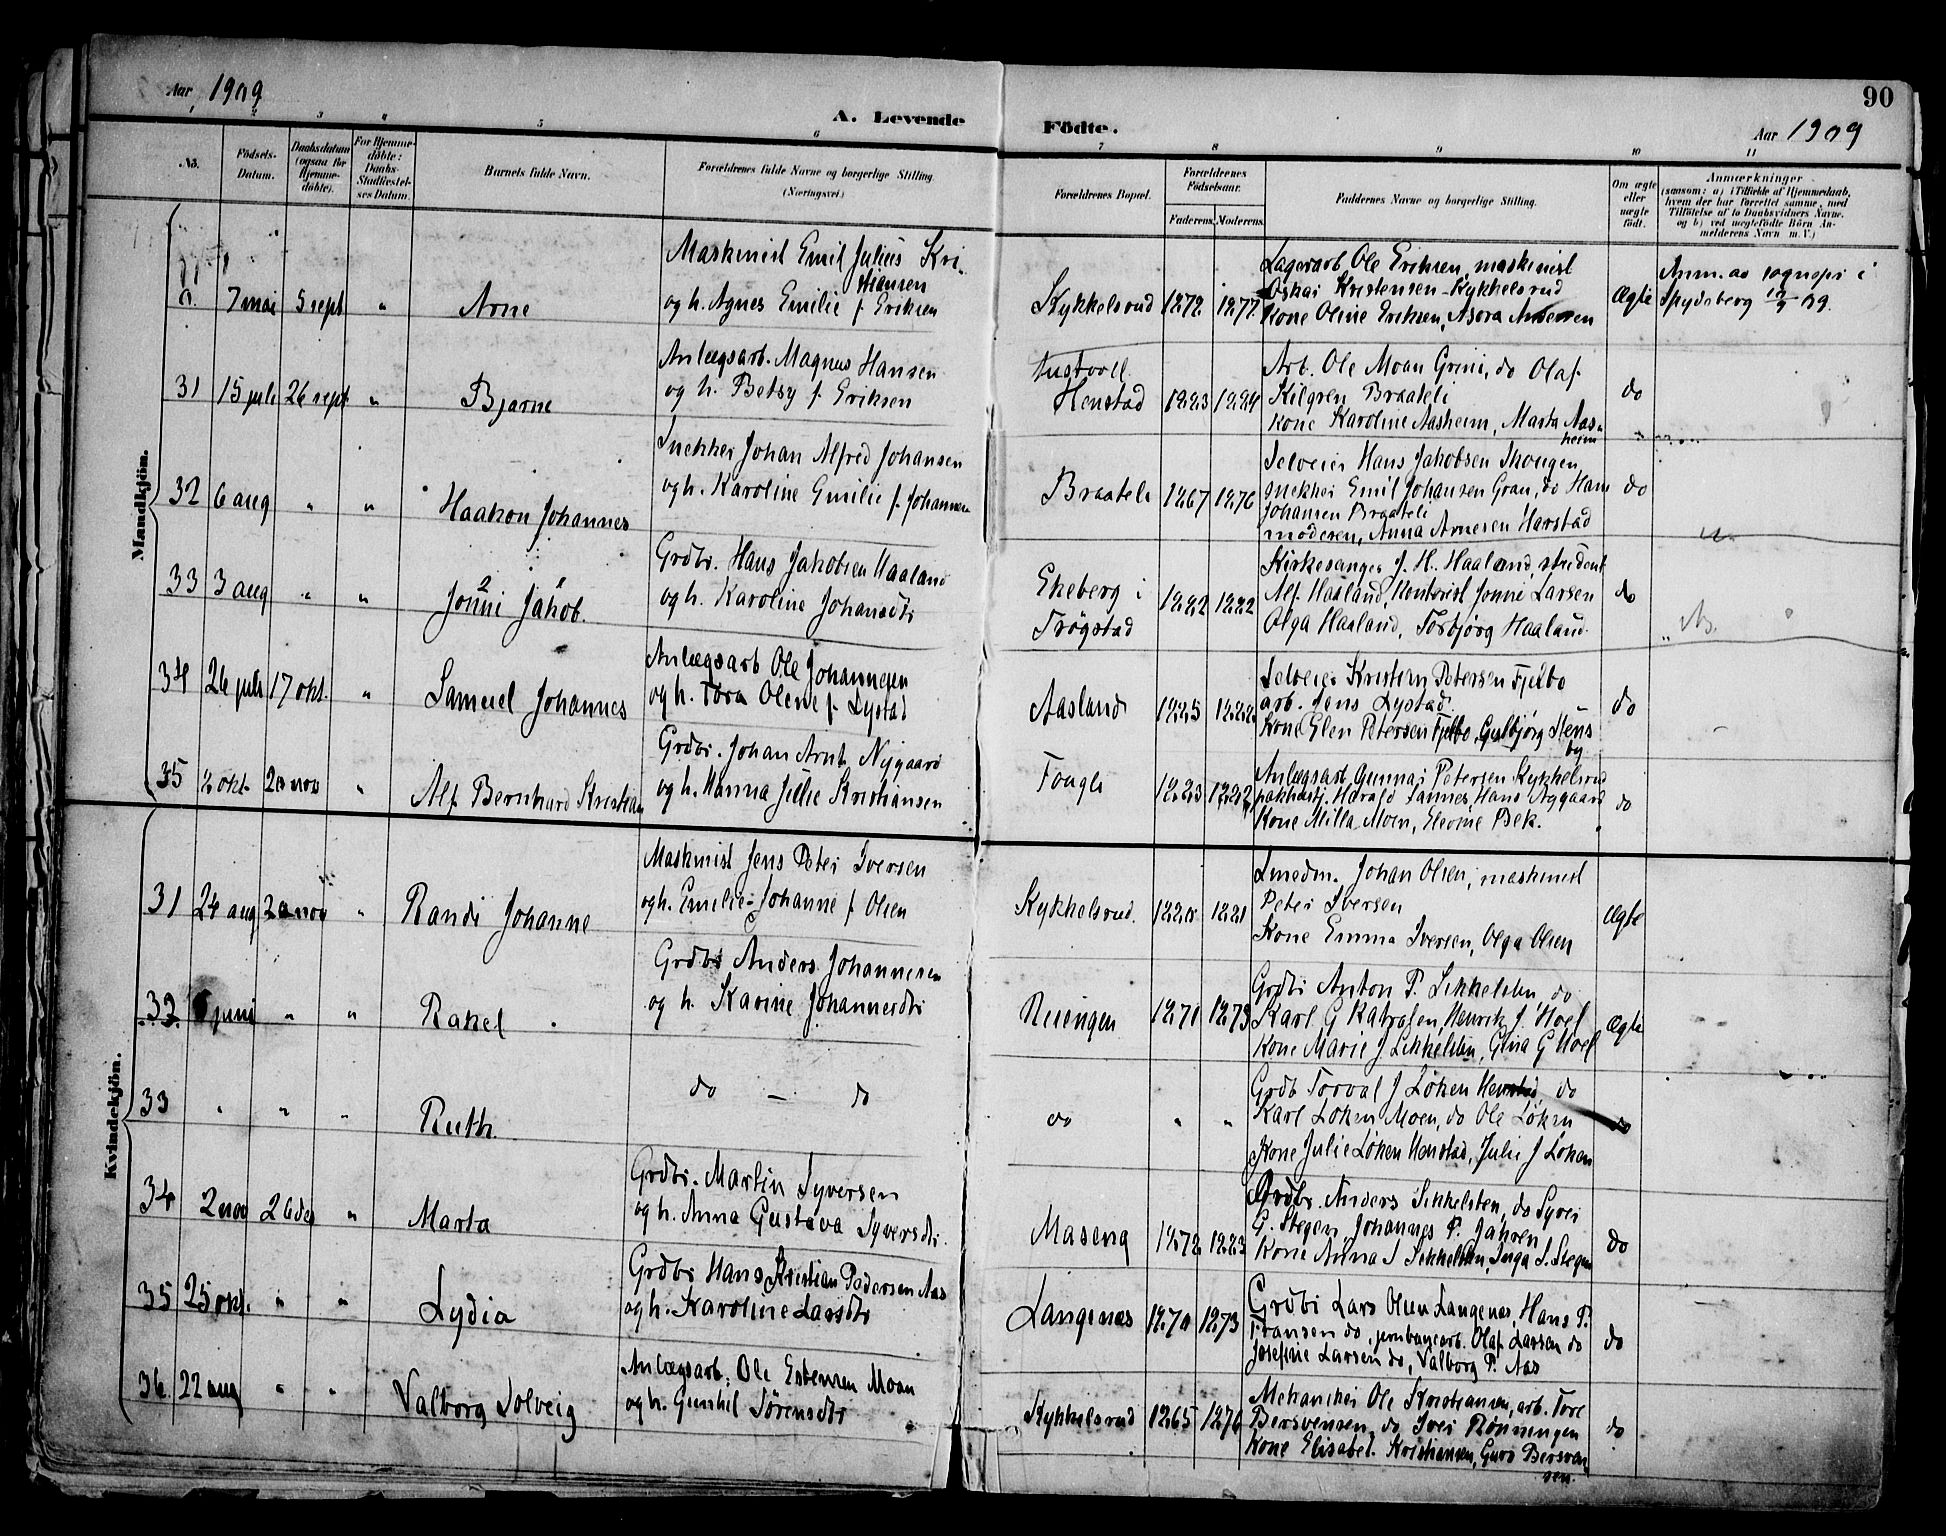 Aar 1909
A. Levende Födte.
Aar 1909
90
1 2 3 4 5 6 7 8 9 10 11
No.
Födsels-Datum.
Daabsdatum (ogsaa for Hjemme-döbte).
For Hjemme-döbte: Daabs-Stadfæstel-ses Datum.
Barnets fulde Navn.
Forældrenes fulde Navne og borgerlige Stilling (Næringsvei.)
Forældrenes Bopæl.
Forældrenes Födselsaar.
Faderens. Moderens.
Faddernes Navne og borgerlige Stilling.
Om ægte eller uægte födt.
Anmærkninger
(saasom: a) i Tilfælde af Hjemmedaab, hvem der har forrettet samme, med Tilföielse af to Daabsvidners Navne, og b) ved uægtefödte Börn An-melderens Navn m. V.)
Mandkjön.
7 mai 5 sept " Arne
Maskinist Emil Julius Kri-stiansen
og h. Agnes Emilie f. Eriksen
Kykkelsrud 1872 1877
Lagerarb Ole Eriksen, maskinist
Oskar Kristensen-Kykkelsrud
Kone Oline Eriksen, Asora
Ægte
Anm. av sognepr i
Spydeberg 12/9 09.
31 15 juli 26 sept " Bjarne
Anlægsarb. Magnus Hansen
og h. Betsy f. Eriksen
Henstad 1883 1884
Arb. Ole Moan Grini, do Olaf
Kilgren Braateli
Kone Karoline Aasheim, Marta Aas-heim
do
32 6 aug " " Haakon Johannes
Snekker Johan Alfred Johansen
og h. Karoline Emilie f. Johannsen
Braateli 1867 1876
Selveier Hans Jakobsen Skougen
snekker Emil Johansen Gran, do Hans
Johansen Braateli
moderen, Anna Arnesen Harstad
do
33 3 aug " " Jonni Jakob.
2 1
Grdbr. Hans Jakobsen Haaland
og h. Karoline Johansdtr
Ekeberg i
Trögstad 1882 1882
Kirkesanger J. H. Haaland, student
Alf Haaland, Kontorist Jonni Larsen
Olga Haaland, Torbjörg Haaland.
do
34 26 juli 17 okt. " Samuel Johannes
Anlægsarb Ole Johannesen
og h. Tora Olene f. Lystad
Aasland 1885 1888
Selveier Kristian Petersen Fjelbo
arb. Jens Lystad.
Kone Elen Petersen Fjelbo, Gulbjörg Stens
by
do
35 2 okt. 20 nov " Alf Bernhard Kristian
Grdbr. Johan Arnt Nygaard
og h. Hanna Julie Kristiansen
Fougli 1883 1882
Anlægsarb Gunnar Petersen Kykkelsrud
pakhusbj. Harald Sannes, Hans Nygaard
Kone Milla Moen, Elevine Bek.
do
Kvindekjön.
31 24 aug 20 nov " Randi Johanne
Maskinist Jens Peter Iversen
og h. Emilie Johanne f. Olsen
Kykkelsrud. 1880 1881
Smedm. Johan Olsen, maskinist
Peter Iversen
Kone Emma Iversen, Olga Olsen
Ægte
32 juni " " Rakel
Grdbr Anders Johannesen
og h. Karine Johannesdtr
1871 1873
Grdbr Anton P. Sikkelsten, do
Karl G , Henrik J Hoel
Kone Marie J Sikkelsten, Gina G Hoel
Ægte
33 " " " Ruth.
do - do
do " "
Grdb Torval J Löken Henstad, do
Karl Löken Moen, do Ole Löken
Kone Julie Löken Henstad, Julie J Löken
do
34 2 nov 26 des " Marta
Grdbr. Martin Syversen
og h. Anna Gustava Syversdtr.
Maseng 1872 1883
Grdbr. Anders Sikkelsten, do Syver
G. Stegen Johannes P. Jahren
Kone Anna S Sikkelsten, Inga S. Stegen
do
35 25 okt. " " Lydia
Grdbr Hans Kristian Pedersen Aas
og h. Karoline Larsdtr
Langenæs 1870 1873
Grdbr Lars Olsen Langenæs, Hans P.
Fransen do, jernbanearb. Olaf Larsen do
Josefine Larsen do, Valborg P. Aas
do
36 22 aug " " Valborg Solveig
Anlægsarb. Ole Estensen Moan
og h. Gunhil Sörensdtr
Kykkelsrud 1865 1870
Mekaniker Ole Kristiansen, arb. Tore
Bersvensen, do Iver Rönningen
Kone Elisabet Kristiansen, Guro Bersven-
sen.
do